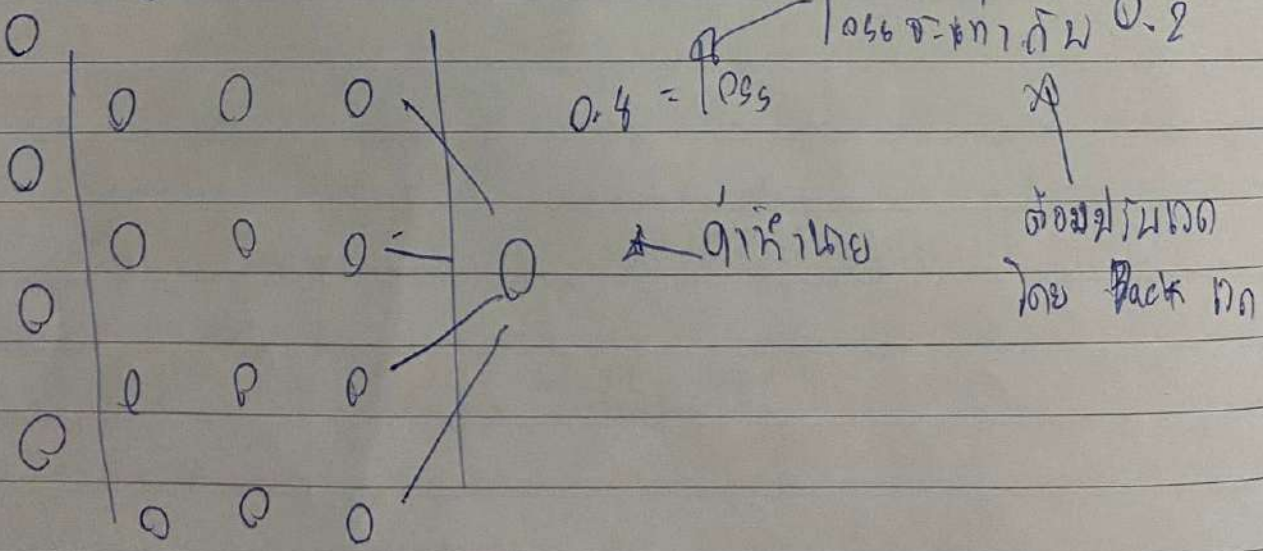 loss จะเท่ากับ 0.2
0.8 = loss
ค่าทำนาย
ต้องปรับเวต
โดย Back เวต